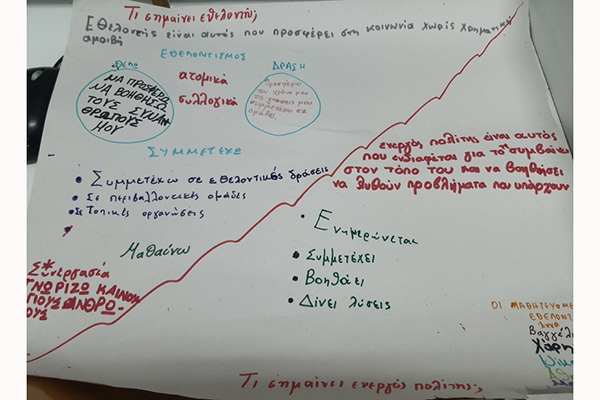 Τι σημαίνει εθελοντής;
[Εθελοντής είναι αυτός που προσφέρει στη κοινωνία χωρίς χρηματική
αμοιβή
ΕΘΕΛΟΝΤΙΣΜΟΣ
ΘΕΛΩ
ΝΑ ΠΡΟΣΦΕΡΩ
ΝΑ ΒΟΗΘΗΣΩ
ΤΟΥΣ ΣΥΝΑΝ
ΘΡΩΠΟΥΣ
ΜΟΥ
ατομικά
συλλογικά
ΔΡΑΣΗ
Προσφέρω
τον χρόνο μου
τις γνώσεις μου
συμμετέχω σε
ομάδες
ΣΥΜΜΕΤΕΧΩ
• Συμμετέχω σε εθελοντικές δράσεις
• Σε περιβαλλοντικές ομάδες
• Σε Τοπικές οργανώσεις
Μαθαίνω
Συνεργασία
ΓΝΩΡΙΖΩ ΚΑΙΝΟΥ
ΡΙΟΥΣ ΑΝΘΡΩ-
ΠΟΥΣ
ενεργός πολίτης είναι αυτός
που ενδιαφέρεται για το συμβαίνει
στον τόπο του και να βοηθήσει
να λυθούν προβλήματα που υπάρχουν
• Ενημερώνεται
• Συμμετέχει
• Βοηθάει
• Δίνει λύσεις
ΟΙ ΜΑΘΗΤΕΥΟΜΕ
ΕΘΕΛΟΝΤ
Άννα
Βαγγέλη
Χάρη
Νίκο
Τι σημαίνει ενεργός πολίτης;